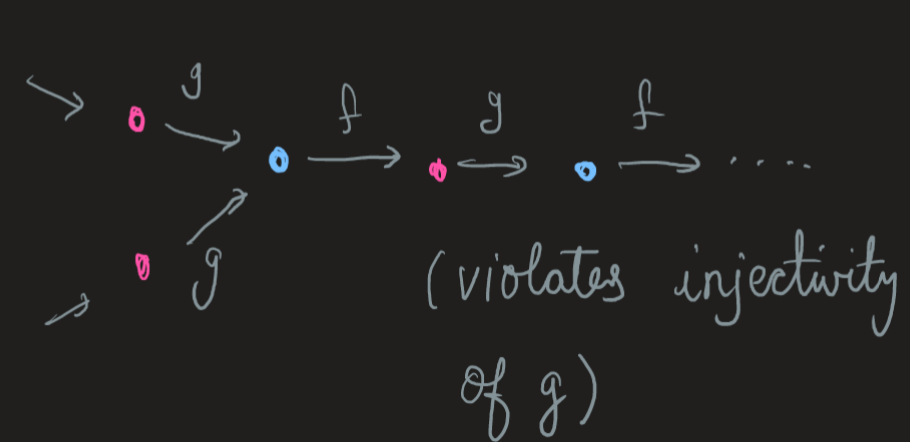 g
f g f
.....
g
(violates injectivity
of g)